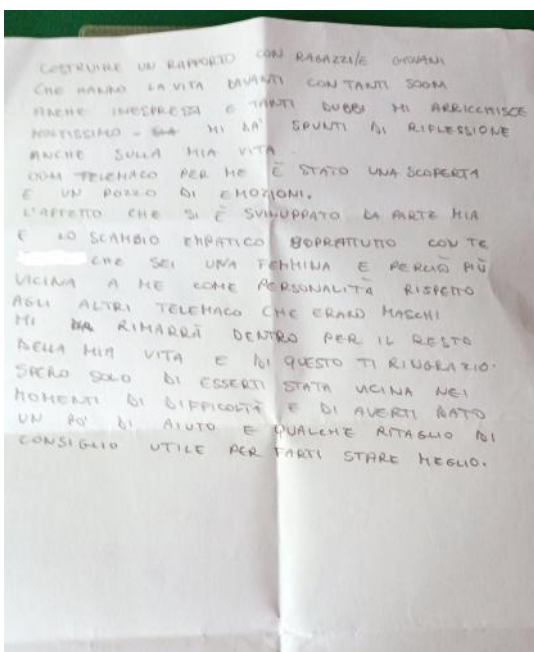 COSTRUIRE UN RAPPORTO CON RAGAZZI/E GIOVANI
CHE HANNO LA VITA DAVANTI CON TANTI SOGNI
ANCHE INESPRESSI E TANTI DUBBI MI ARRICCHISCE
MOLTISSIMO - MI DA' SPUNTI DI RIFLESSIONE
ANCHE SULLA MIA VITA.
OGNI TELEMACO PER ME È STATO UNA SCOPERTA
E UN POZZO DI EMOZIONI.
L'AFFETTO CHE SI È SVILUPPATO DA PARTE MIA
E LO SCAMBIO EMPATICO SOPRATTUTTO CON TE
CHE SEI UNA FEMMINA E PERCIÒ PIÙ
VICINA A ME COME PERSONALITÀ RISPETTO
AGLI ALTRI TELEMACO CHE ERANO MASCHI
MI RIMARRÀ DENTRO PER IL RESTO
DELLA MIA VITA E DI QUESTO TI RINGRAZIO.
SPERO SOLO DI ESSERTI STATA VICINA NEI
MOMENTI DI DIFFICOLTÀ E DI AVERTI DATO
UN PO' DI AIUTO E QUALCHE RITAGLIO DI
CONSIGLIO UTILE PER FARTI STARE MEGLIO.